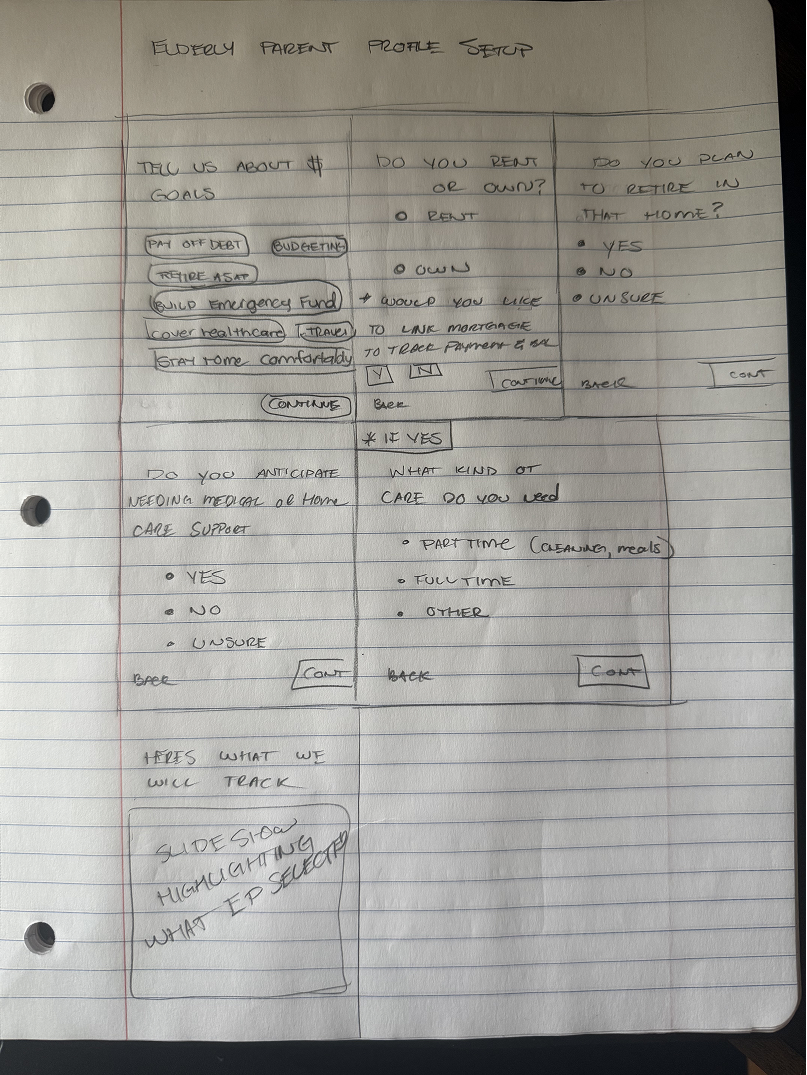 ELDERLY PARENT PROFILE SETUP
TELL US ABOUT $
GOALS
PAY OFF DEBT
BUDGETING
RETIRE ASAP
BUILD Emergency Fund
cover healthcare
TRAVEL
STAY Home comfortably
CONTINUE
DO YOU RENT
OR OWN?
RENT
OWN
* WOULD YOU LIKE
TO LINK MORTGAGE
TO TRACK Payment & BAL
Y N
CONTINUE
BACK
DO YOU PLAN
TO RETIRE IN
THAT HOME?
YES
NO
UNSURE
BACK
CONT
DO YOU ANTICIPATE
NEEDING MEDICAL OR Home
CARE SUPPORT
YES
NO
UNSURE
BACK
CONT
* IF YES
WHAT KIND OF
CARE DO YOU need
PART TIME (CLEANING, meals)
FULL TIME
OTHER
BACK
CONT
HERES WHAT WE
WILL TRACK
SLIDESHOW
HIGHLIGHTING
WHAT EP SELECTED